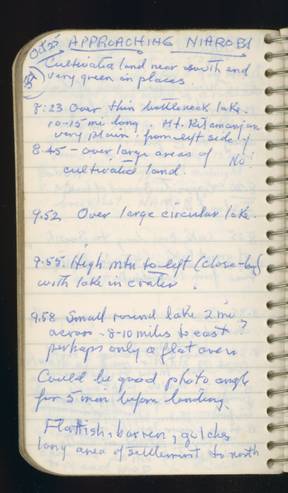 APPROACHING NIAROBI
Cultivated land near south and
very green in places.
8:23 Over thin bottleneck lake.
10-15 mi long. Mt. Kilamanjaro
very plain from left side!
8:45 - over large areas of No!
cultivated land.
9:52 Over large circular lake.
9:55 High mtn to left (close-by)
with lake in crater.
9:58 Small round lake 2 mi
across - 8-10 miles to east?
perhaps only a flat area
Could be good photo angle
for 5 min before landing.
Flattish, barren, gulches
long area of settlement to north